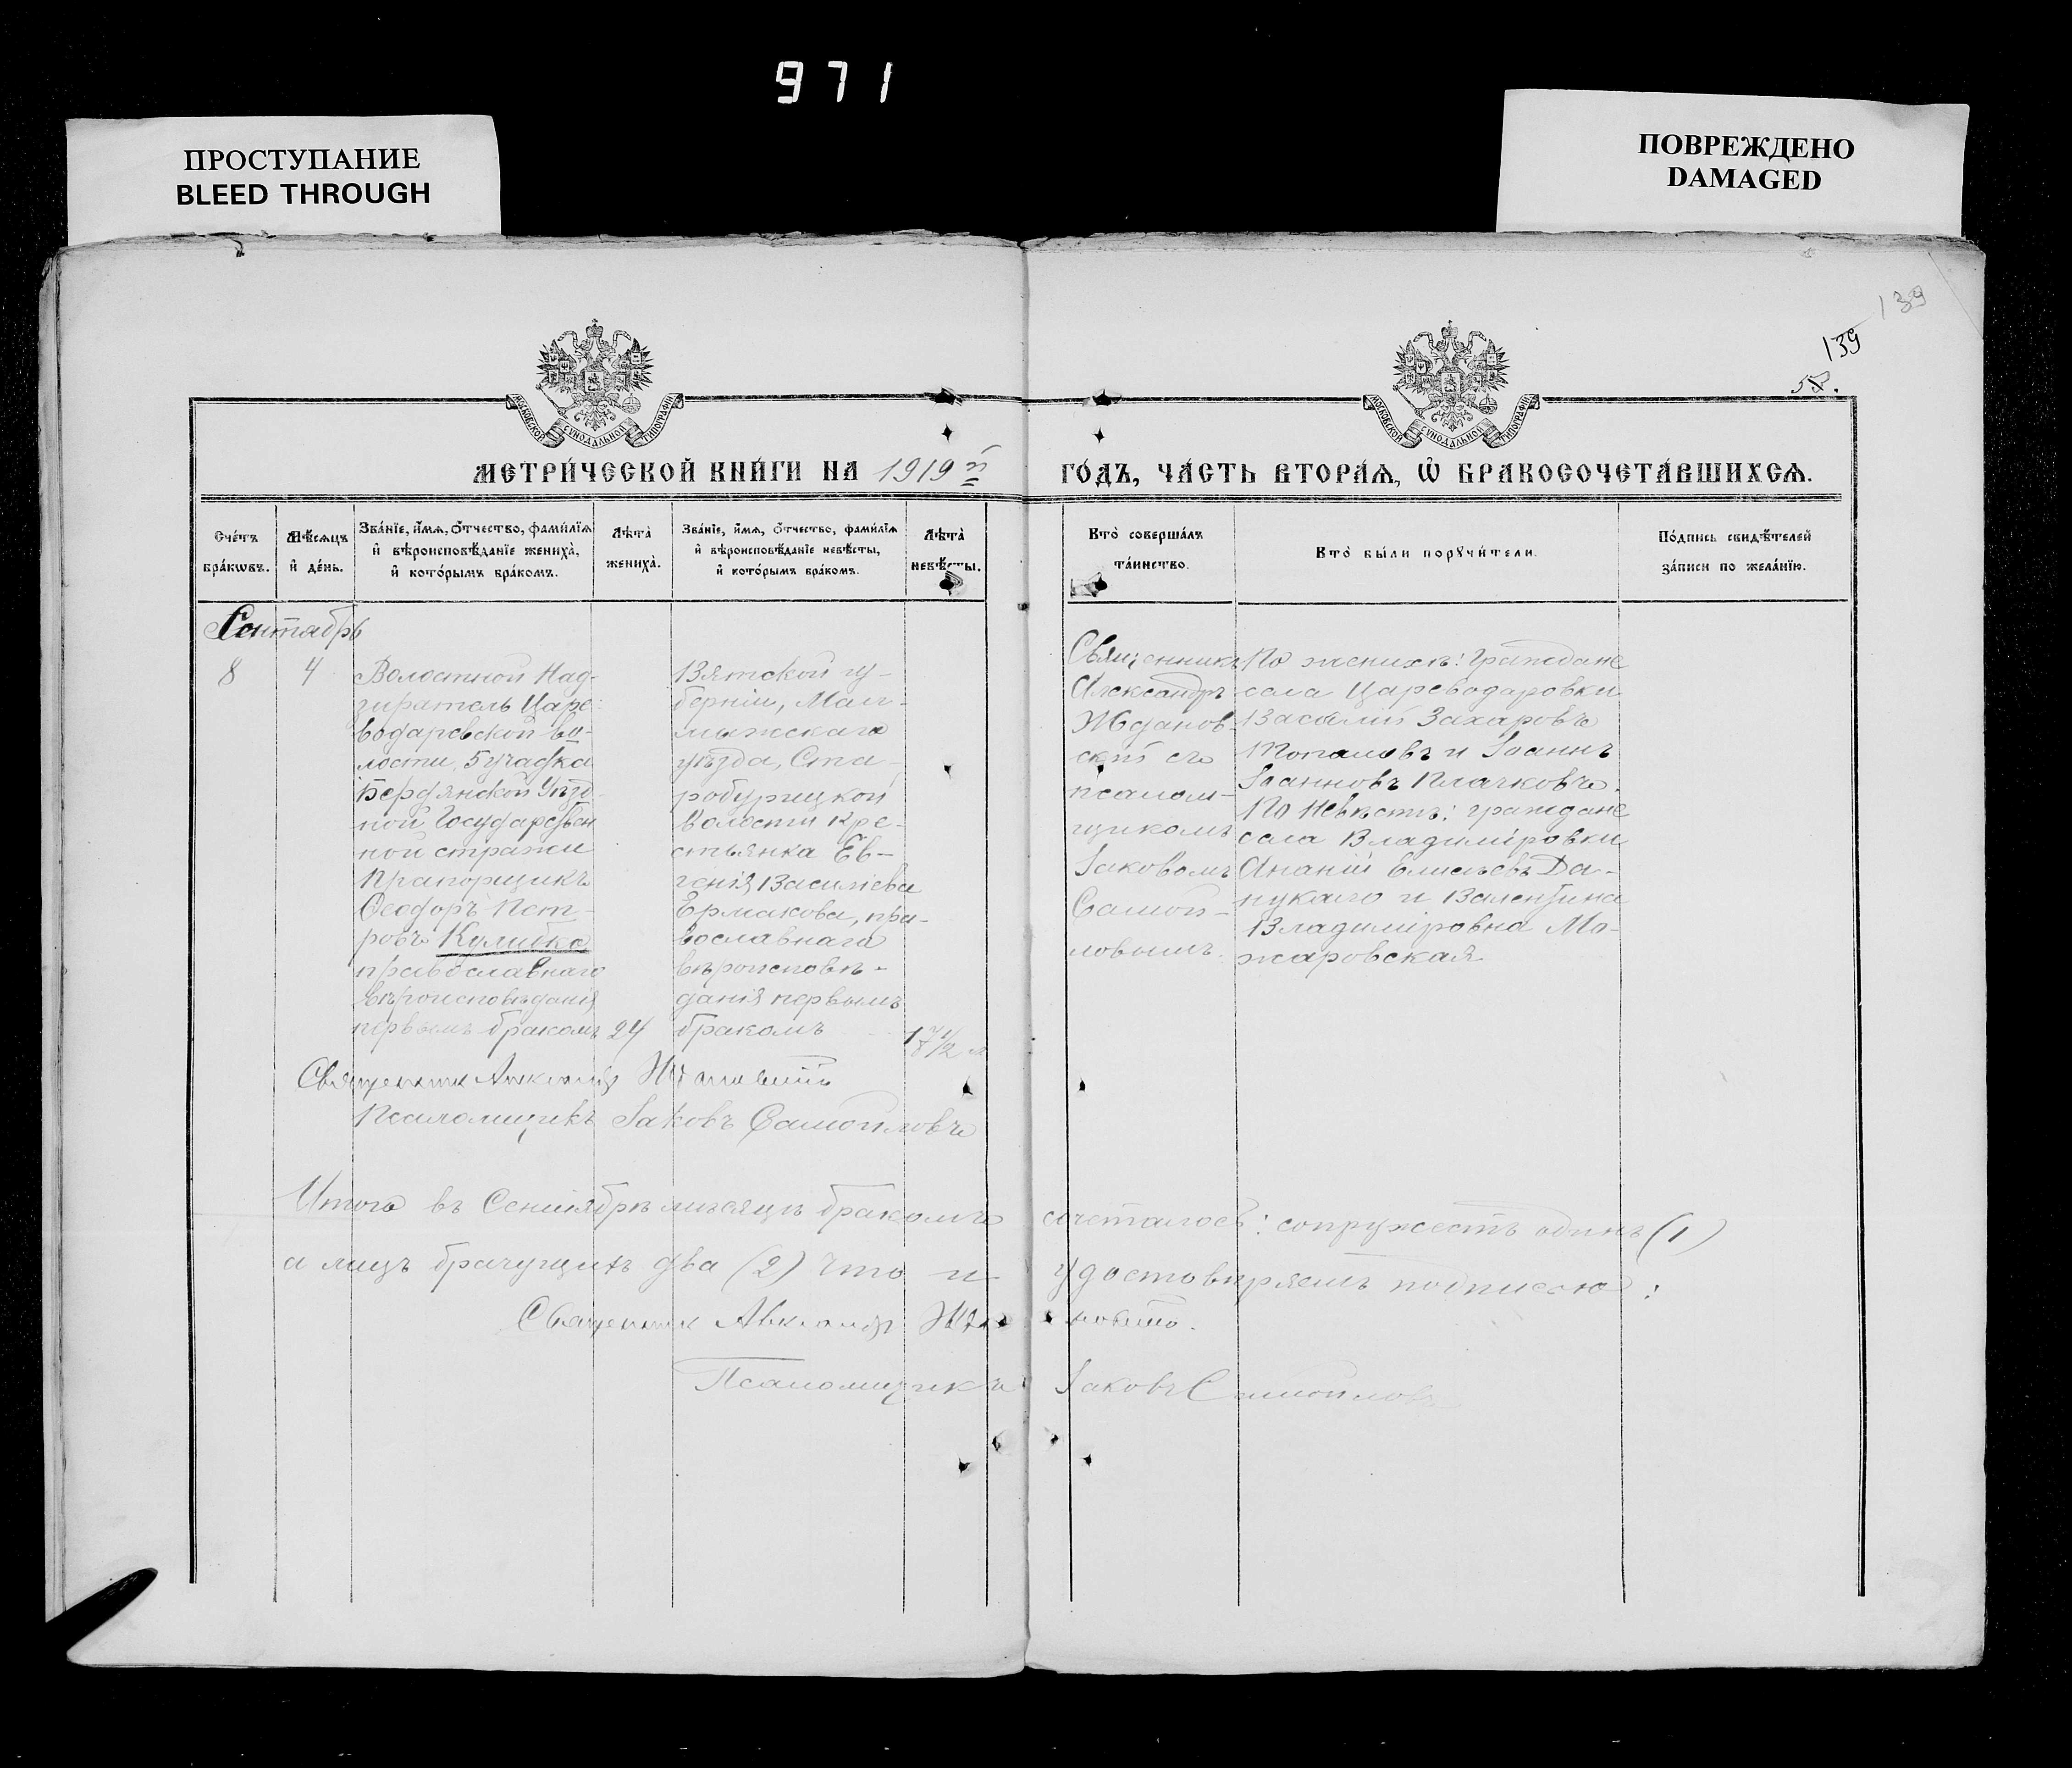 971
ПРОСТУПАНИЕ
BLEED THROUGH
ПОВРЕЖДЕНО
DAMAGED
139
139
МОСКОВСКОЙ СѴНОДАЛЬНОЙ ТИПОГРАФІИ
МОСКОВСКОЙ СѴНОДАЛЬНОЙ ТИПОГРАФІИ
МЕТРИ́ЧЕСКОЙ КНИ́ГИ НА 1919 й
ГО́ДЪ, ЧА́СТЬ ВТОРА́Я, Ѽ БРАКОСОЧЕТА́ВШИХСЯ.
Сче́тъ
бра́кѡвъ.
Мѣ́сяцъ
и҆ де́нь.
Зва́нїе, и҆́мѧ, ѻ҆́тчество, фами́лїѧ
и҆ вѣроисповѣ́данїе жениха̀,
и҆ кото́рымъ бра́комъ.
Лѣта̀
жениха̀.
Зва́нїе, и҆́мѧ, ѻ҆́тчество, фами́лїѧ
и҆ вѣроисповѣ́данїе невѣ́сты,
и҆ кото́рымъ бра́комъ.
Лѣта̀
невѣ́сты.
Кто̀ соверша́лъ
та́инство.
Кто̀ бы́ли порꙋчи́тели.
По́дпись свидѣ́телей
за́писи по жела́нїю.
Сентябрь
8
4
Волостной Над-
зиратель Царе-
водаровской во-
лости, 5 участка
Бердянской Уѣзд-
ной Государствен
ной стражи
Прапорщикъ
Ѳеодоръ Пет-
ровъ Кулибка
православнаго
вѣроисповѣданія
первымъ бракомъ
24
Вятской гу-
берніи, Мал-
мыжскаго
уѣзда, Ста-
робурецкой
Волости кре-
стьянка Ев-
генія Василіева
Ермакова, пра-
вославнаго
вѣроисповѣ-
данія первымъ
бракомъ
17½ л
Священникъ
Александръ
Жданов-
скій съ
псалом-
щикомъ
Іаковомъ
Самой-
ловымъ.
По женихѣ: граждане
села Цареводаровки
Василій Захаровъ
Топаловъ и Іоаннъ
Іоанновъ Плачковъ.
По Невѣстѣ: граждане
села Владиміровки
Ананій Елисѣевъ Да-
цукало и Валентина
Владиміровна Мо-
жаровская
Священник Александр Ждановскій
Псаломщикъ Іаковъ Самойловъ
Итого въ Сентябрѣ мѣсяцѣ бракомъ сочеталось: супружествъ одинъ (1)
а лицъ брачущихъ два (2) что и удостовѣряемъ подписью:
Священник Александр Ждановскій.
Псаломщикъ Іаковъ Самойловъ